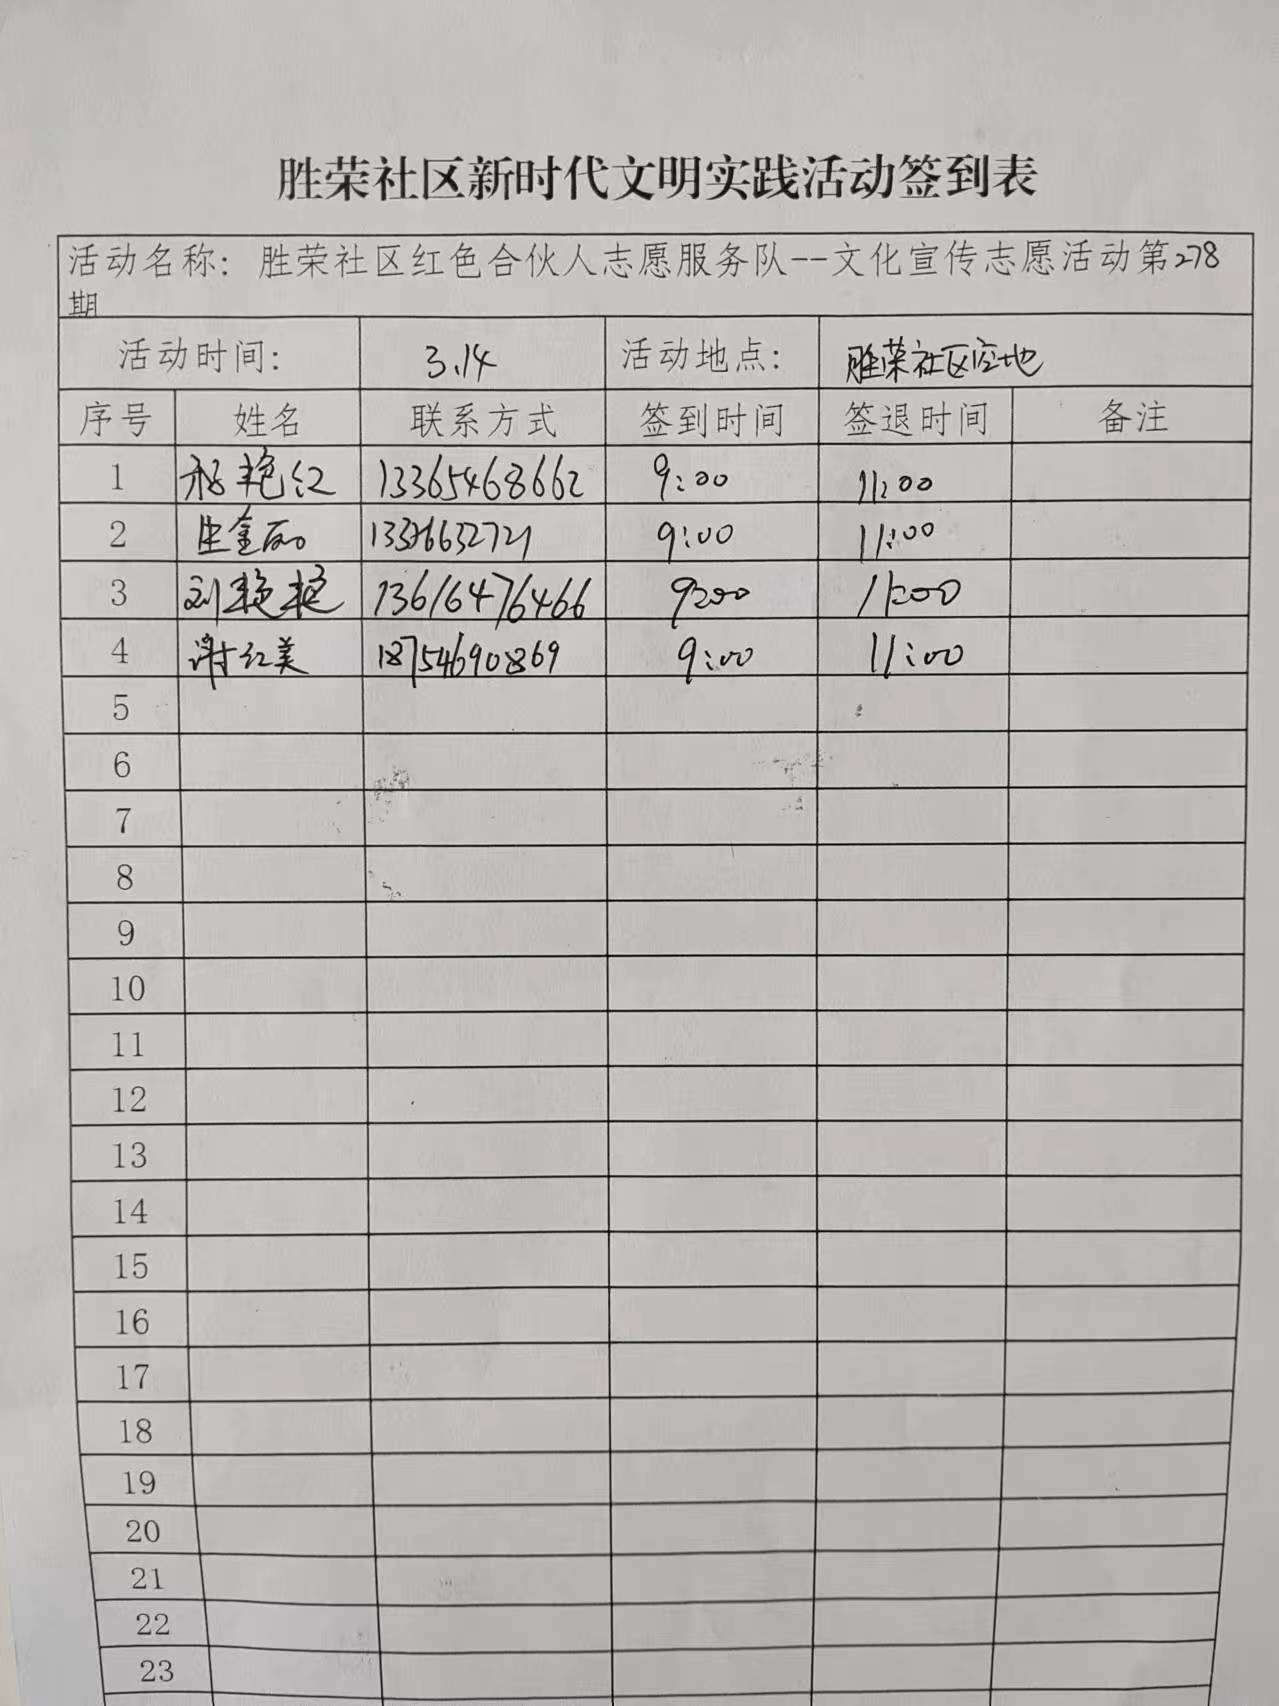 胜荣社区新时代文明实践活动签到表
活动名称：胜荣社区红色合伙人志愿服务队--文化宣传志愿活动第278
期
活动时间： 3.14 活动地点： 胜荣社区空地
序号 姓名 联系方式 签到时间 签退时间 备注
1 艳红 13365468662 9:00 11:00
2 9:00 11:00
3 刘艳艳 13616476466 9:00 11:00
4 谢红美 18754690869 9:00 11:00
5
6
7
8
9
10
11
12
13
14
15
16
17
18
19
20
21
22
23